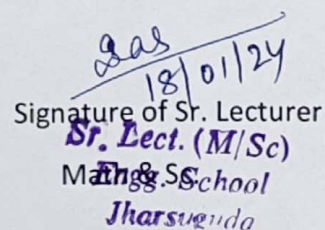 Das
18/01/24
Signature of Sr. Lecturer
Sr. Lect. (M/Sc)
Math & Sc.
Engg. School
Jharsuguda